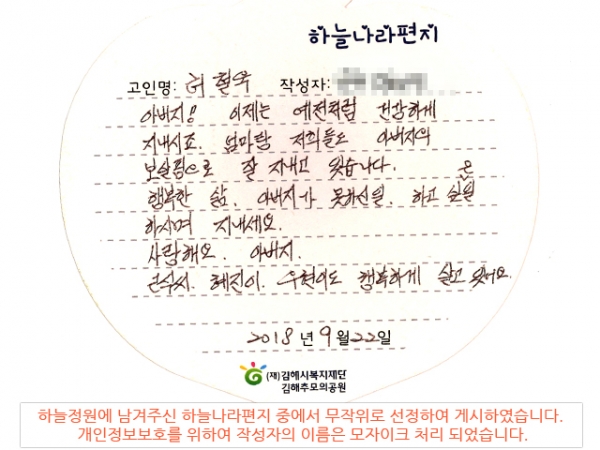 하늘나라편지
고인명: 허 철욱 작성자:
아버지! 이제는 예전처럼 건강하게
지내시죠. 엄마랑 저희들도 아버지의
보살핌으로 잘 지내고 있습니다.
행복한 삶. 아버지가 못하신일. 하고 싶은일
하시며 지내세요.
사랑해요. 아버지.
혜진이. 우현이도 행복하게 살고 있어요.
2018 년 9 월 22 일
(재)김해시복지재단
김해추모의공원
하늘정원에 남겨주신 하늘나라편지 중에서 무작위로 선정하여 게시하였습니다.
개인정보보호를 위하여 작성자의 이름은 모자이크 처리 되었습니다.